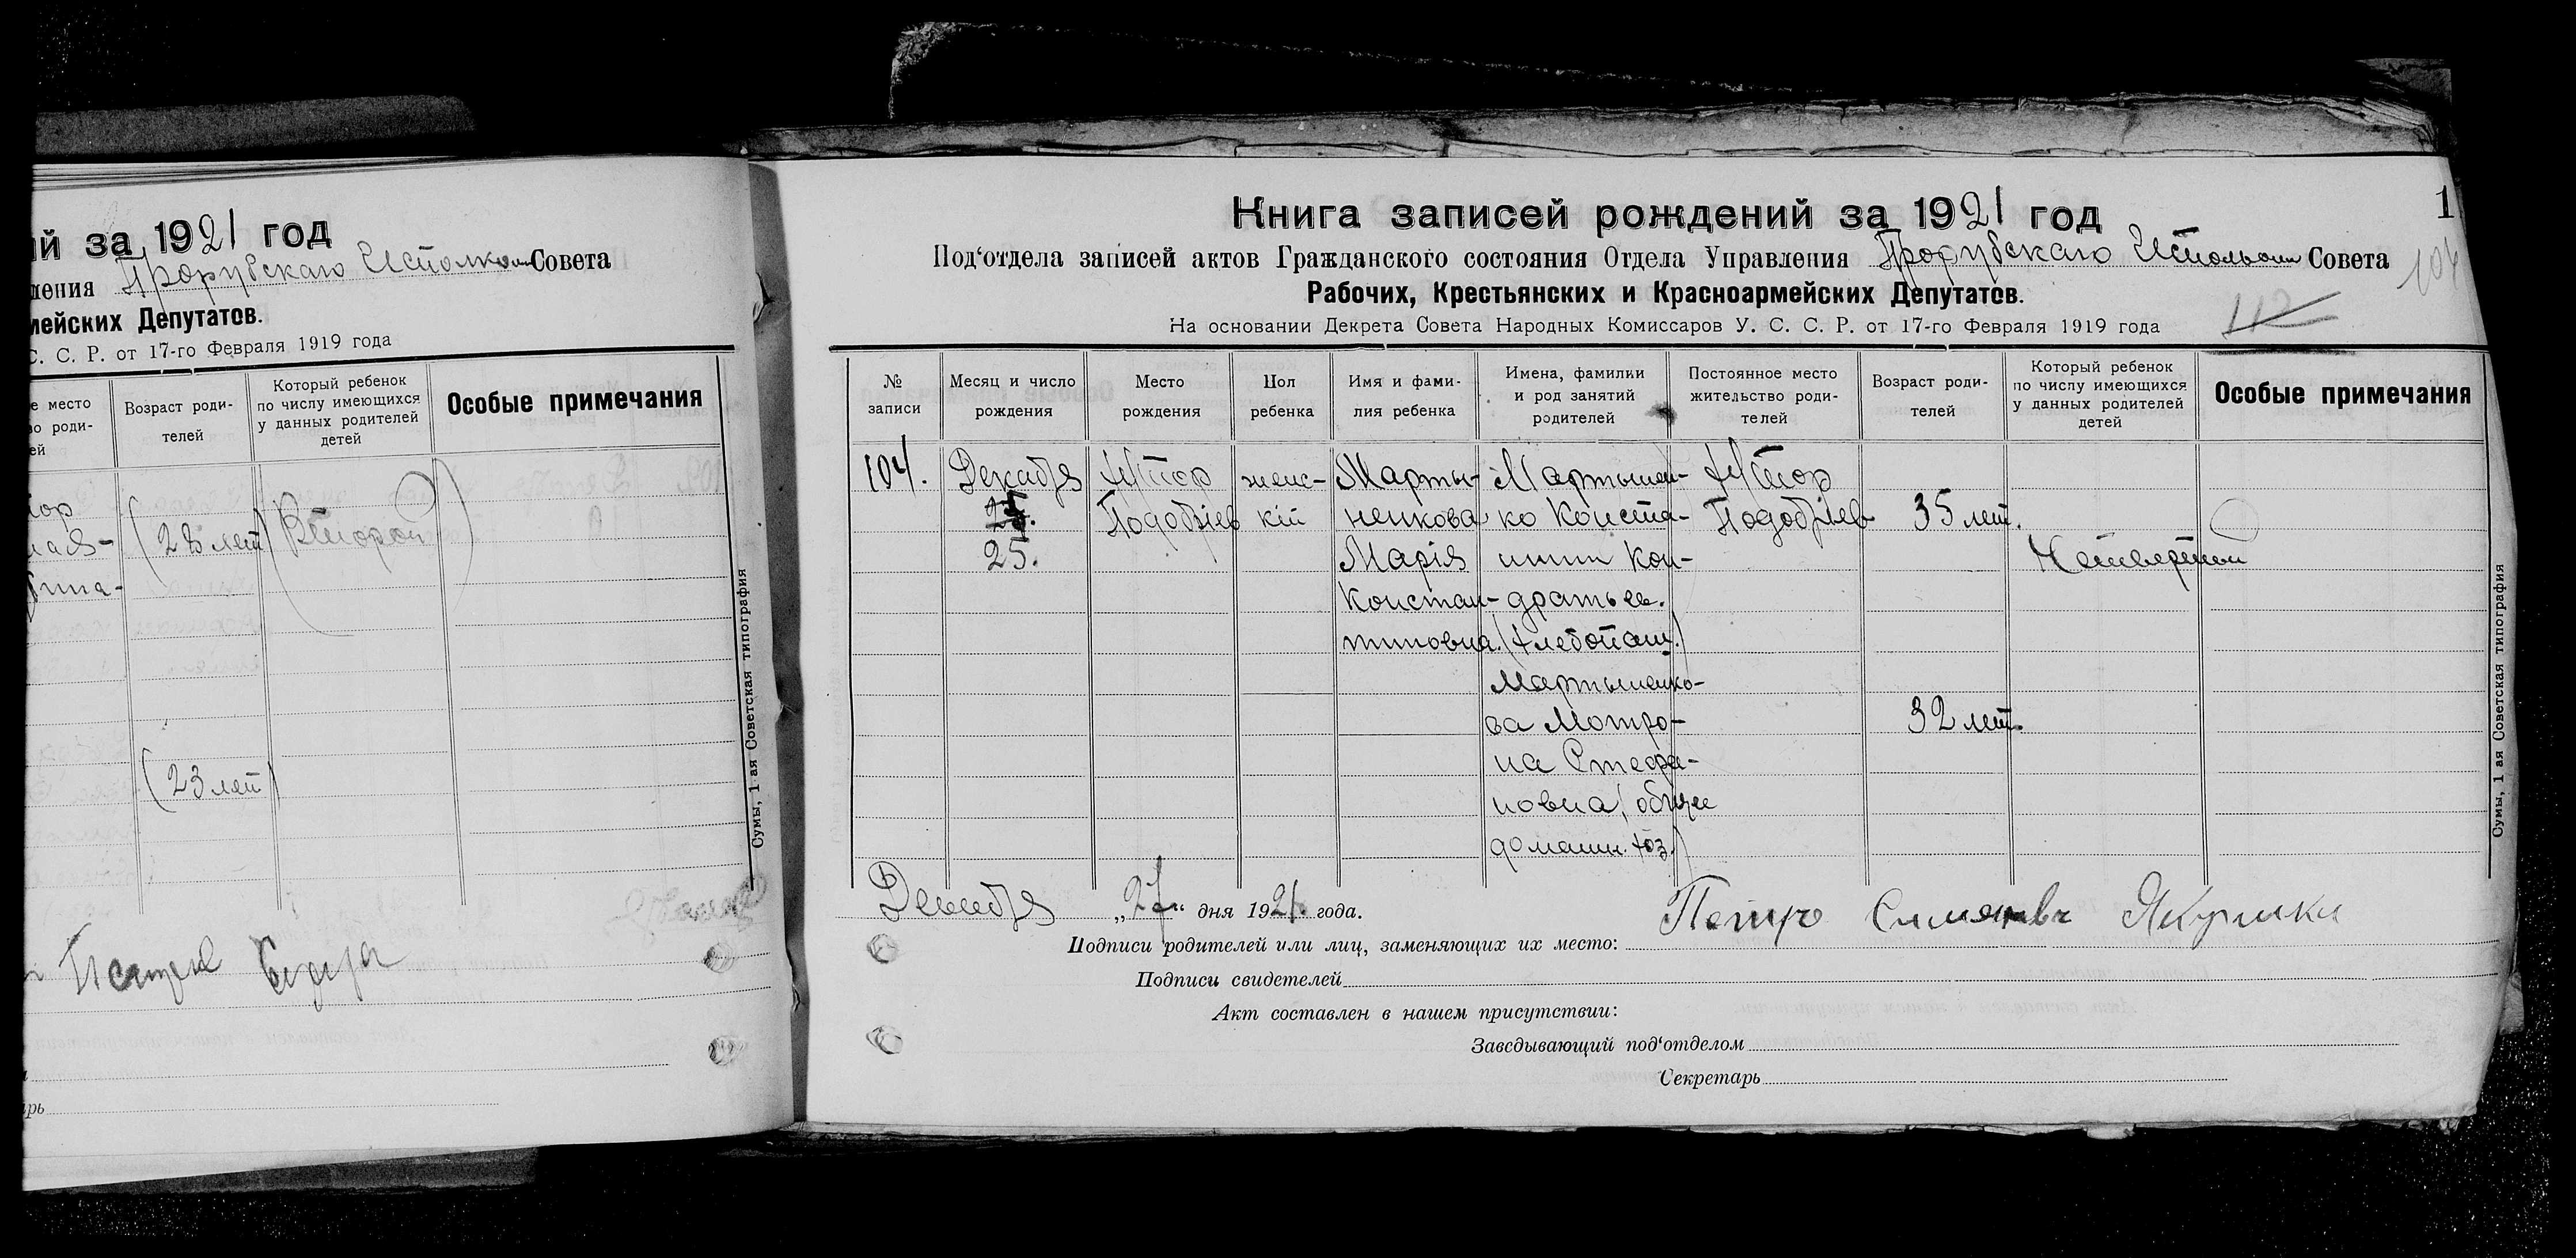 ий за 1921 год
ления Прорубскаго Исполком Совета
мейских Депутатов.
С. С. Р. от 17-го Февраля 1919 года
е место
во роди-
ей
Возраст роди-
телей
Который ребенок
по числу имеющихся
у данных родителей
детей
Особые примечания
тор
(28 лет)
Второй
(23 лет)
Сумы, 1 ая Советская типография
арь
Книга записей рождений за 1921 год
1
Под‘отдела записей актов Гражданского состояния Отдела Управления Прорубскаго Исполком Совета
104
Рабочих, Крестьянских и Красноармейских Депутатов.
112
На основании Декрета Совета Народных Комиссаров У. С. С. Р. от 17-го Февраля 1919 года
№
записи
Месяц и число
рождения
Место
рождения
Пол
ребенка
Имя и фами-
лия ребенка
Имена, фамилии
и род занятий
родителей
Постоянное место
жительство роди-
телей
Возраст роди-
телей
Который ребенок
по числу имеющихся
у данных родителей
детей
Особые примечания
104.
Декабря
25.
Хутор
Подобріев
женс-
кій
Марты-
ненкова
Марія
Констан-
тиновна.
Мартынен-
ко Конста-
нтин Кон-
дратьев.
(Хлебопаш.)
Мартыненко-
ва Мотро-
на Стефа-
новна (общее
домашн. хоз.)
Хутор
Подобріев
35 лет.
32 лет.
Четвертый
Декабря „27“ дня 1921 года.
Подписи родителей или лиц, заменяющих их место: Петро
Подписи свидетелей
Акт составлен в нашем присутствии:
Заведывающий под‘отделом
Секретарь
Сумы, 1 ая Советская типография